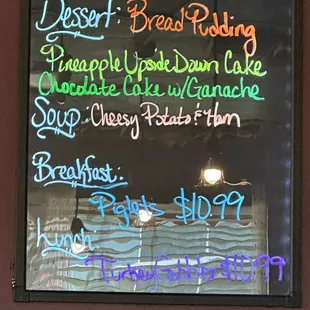 Dessert: Bread Pudding
Pineapple Upside Down Cake
Chocolate Cake w/Ganache
Soup: Cheesy Potato & Ham
Breakfast:
Piglets $10.99
Lunch:
Turkey Gobbler $10.99